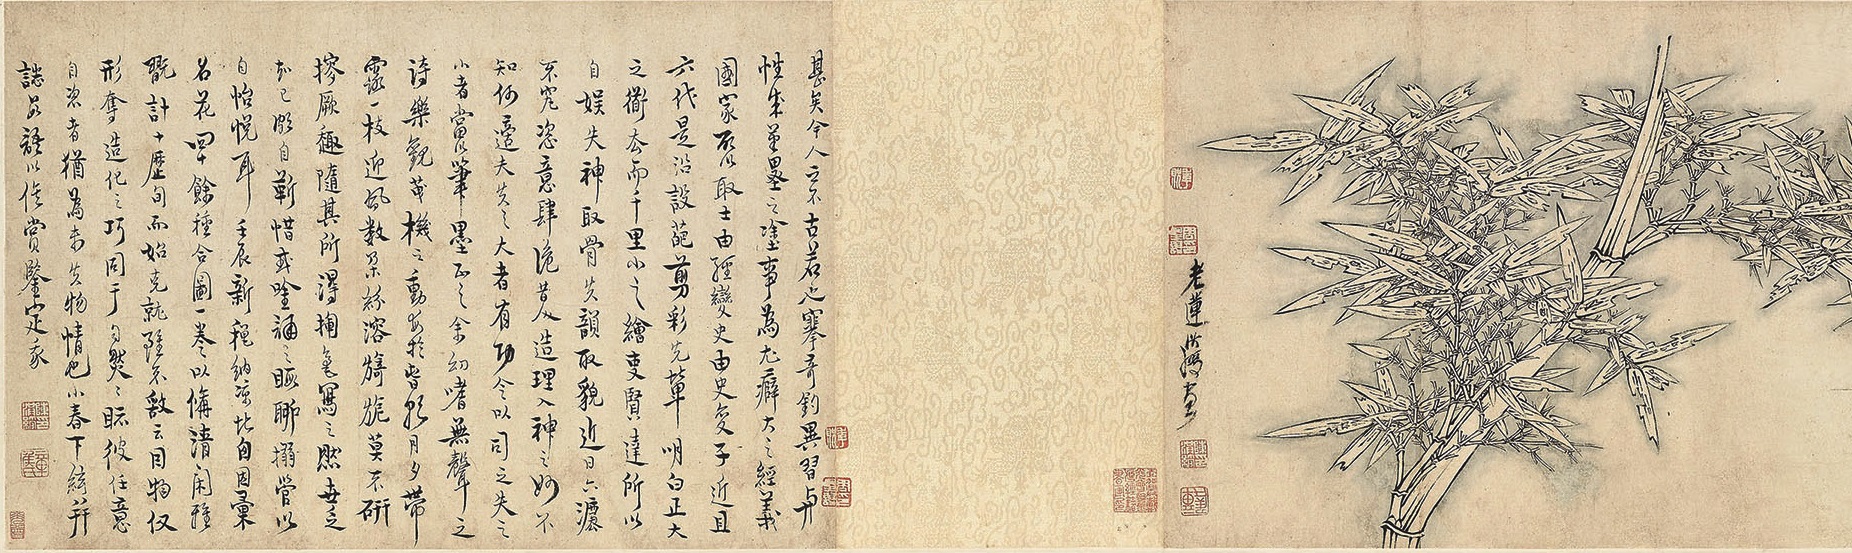 老蓮洪綬畫
甚矣今人之不古若也搴奇釣異習与
性成筆墨之塗事為尤癖大之經義
國家所以取士由經變史由史變子近且
六代是沿設葩剪彩先輩明白正大
之衢去而千里小之繪事賢達所以
自娛失神取骨失韻取貌近日六瀌
不究恣意肆詭昔人造理入神之妙不
知何適夫失之大者有功令以司之失之
小者當以筆墨正之余幼嗜無聲之
詩樂觀草機之動每於昏影月夕帶
露一枝迎風數朵綠溶旖旎莫不研
撏厥趣隨其所得捕毫寫之然世乏
知己頗自靳惜或唫誦之暇聊搦管以
自怡悅耳壬辰新穐納凉北囱因彙
名花四十餘種合圖一卷以備清閑雅
翫計十歷旬而始克就雖不敢云因物仅
形奪造化之巧同于自然之眎彼任意
自恣者猶為未失物情也小春下絃并
誌數語以俟賞鑒家